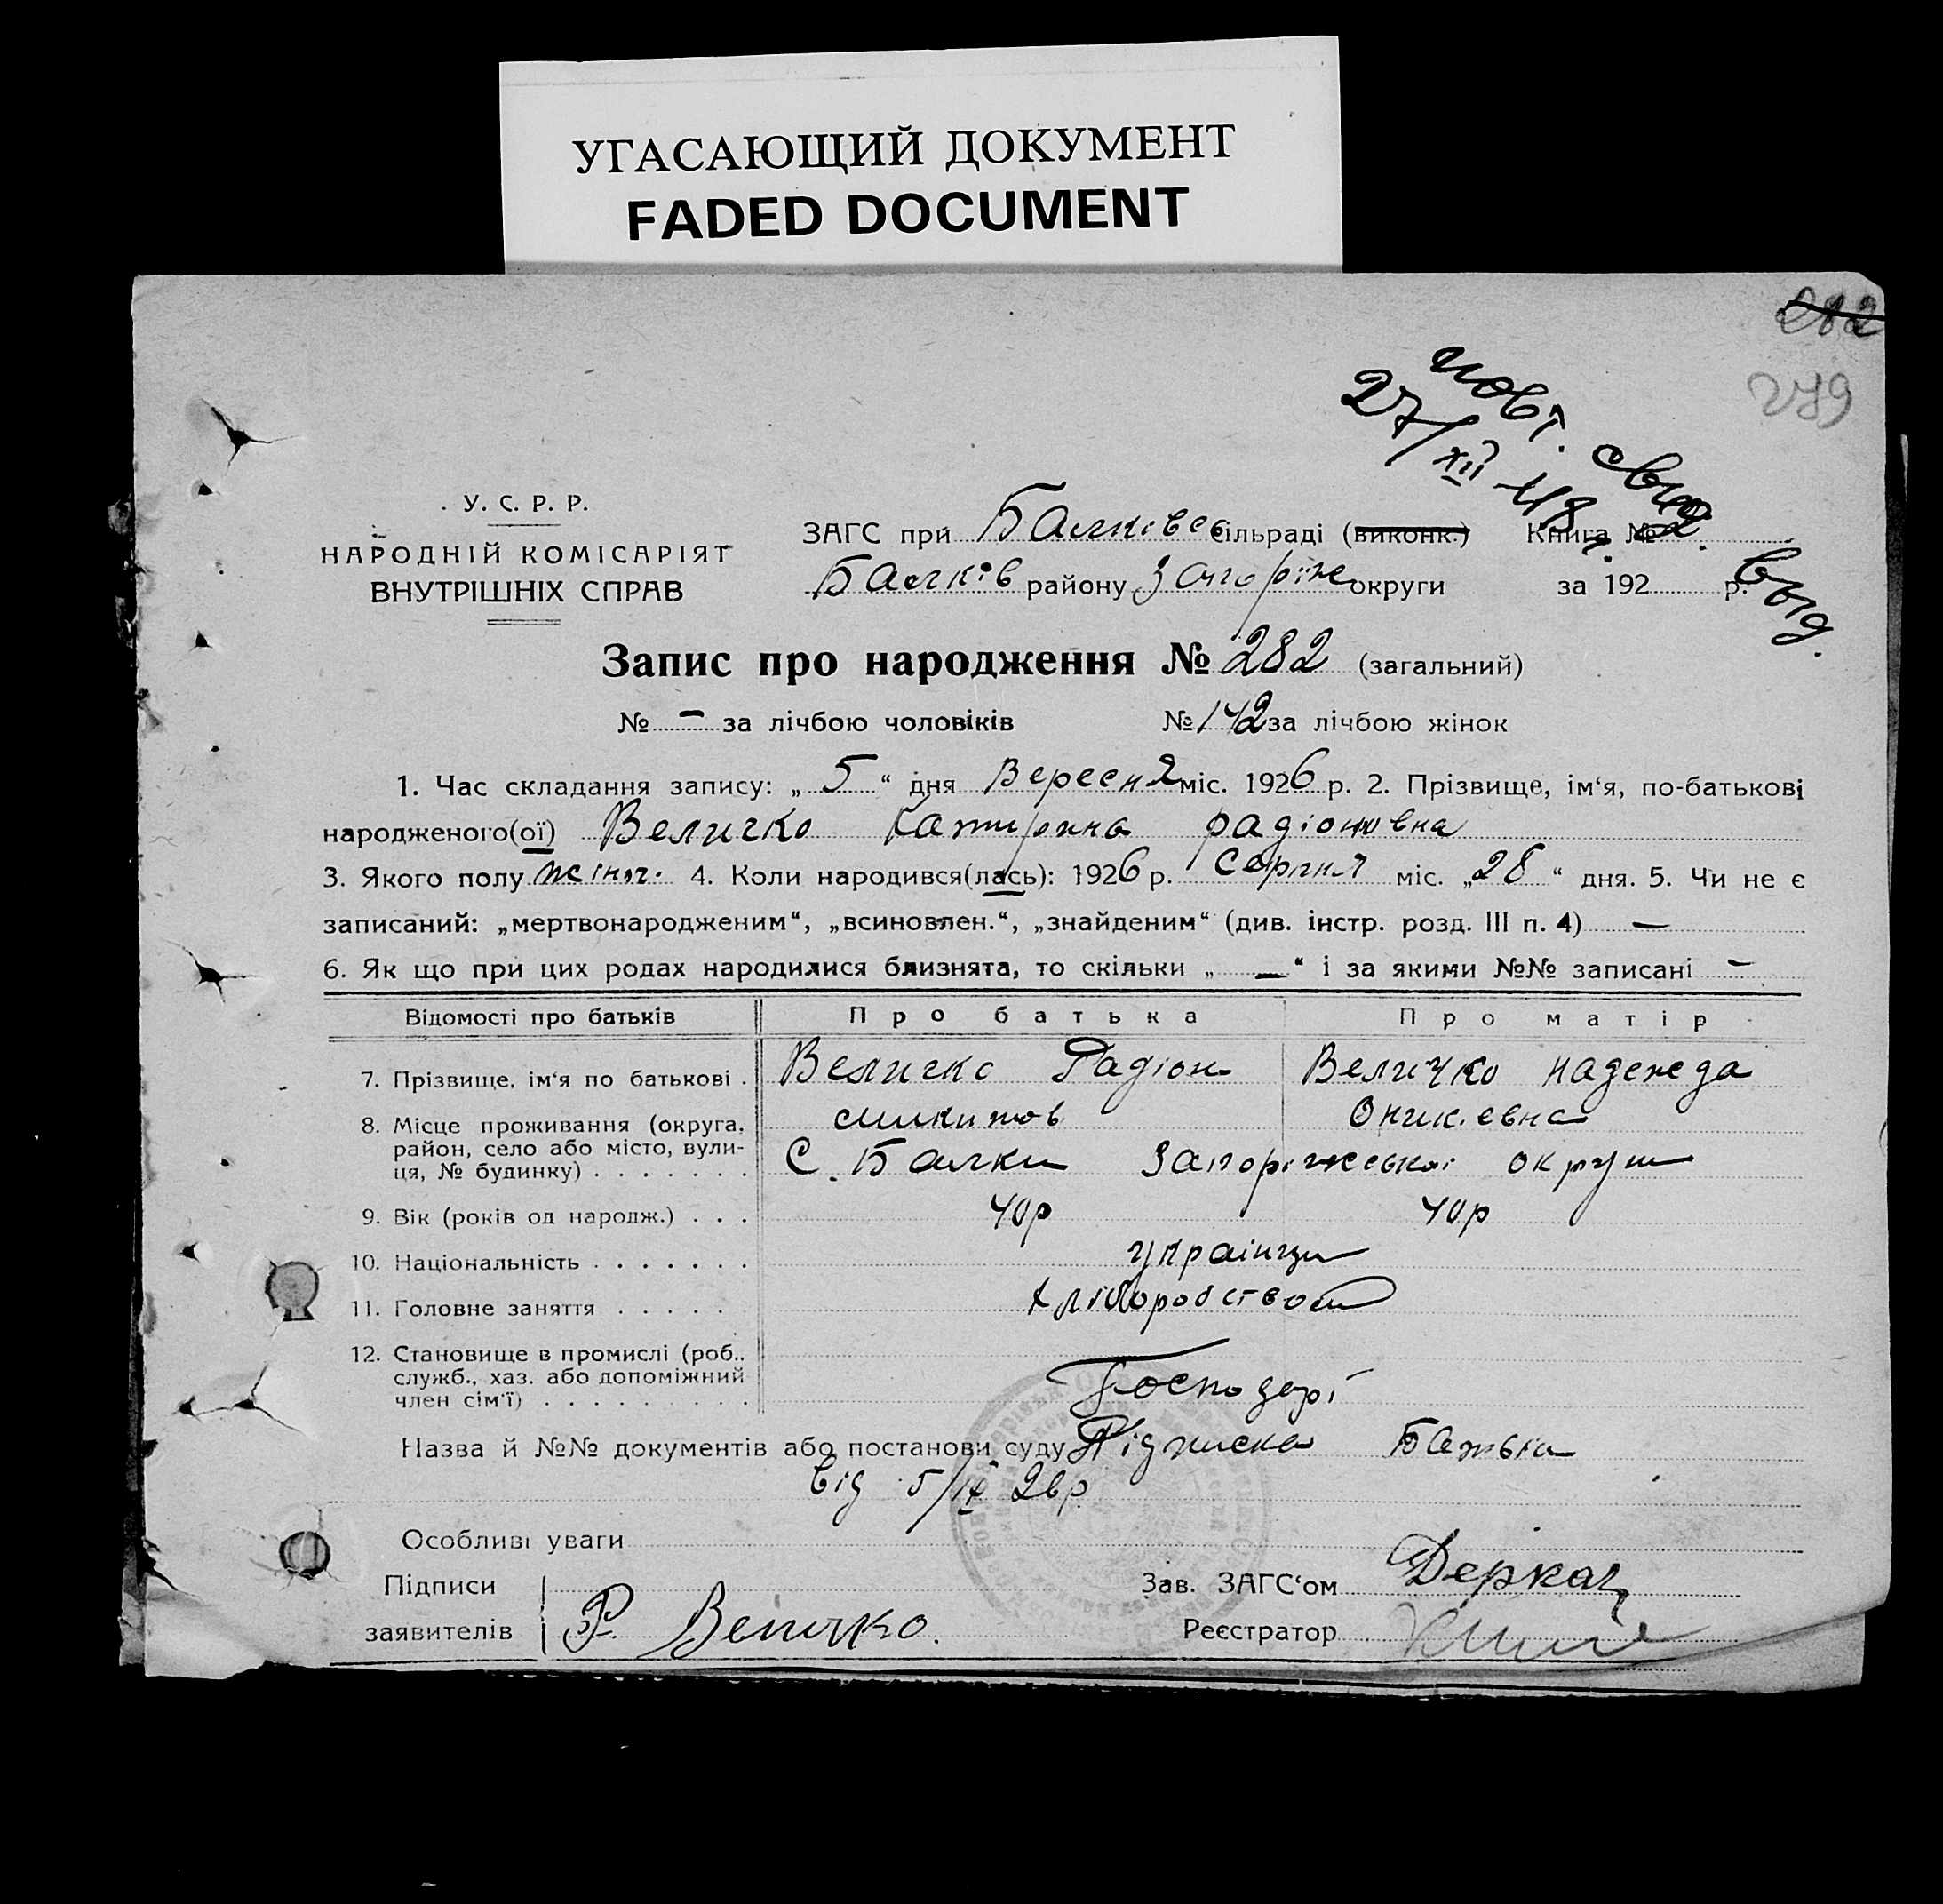 УГАСАЮЩИЙ ДОКУМЕНТ
FADED DOCUMENT
282
279
повт. свид. выд.
27/XII 48 г.
У. С. Р. Р.
НАРОДНІЙ КОМІСАРІЯТ
ВНУТРІШНІХ СПРАВ
ЗАГС при Балківс сільраді (виконк.) Книга №
Балків району Запоріж округи за 192 р.
Запис про народження № 282 (загальний)
№ – за лічбою чоловіків № 142 за лічбою жінок
1. Час складання запису: „ 5 “ дня Вересня міс. 1926 р. 2. Прізвище, ім‘я, по-батькові
народженого(ої) Величко Катирина радіоновна
3. Якого полу жіноч. 4. Коли народився(лась): 1926 р. Серпня міс. „28“ дня. 5. Чи не є
записаний: „мертвонародженим“, „всиновлен.“, „знайденим“ (див. інстр. розд. III п. 4) —
6. Як що при цих родах народилися близнята, то скільки „ — “ і за якими №№ записані –
Відомості про батьків Про батька Про матір
7. Прізвище, ім‘я по батькові . Величко Радіон Величко надежда
микитов Оник.евна
8. Місце проживання (округа,
район, село або місто, вули-
ця, № будинку) . . . . . . . С. Балки Запоріжської округи
9. Вік (років од народж.) . . . 40р 40р
10. Національність . . . . . . . українци
11. Головне заняття . . . . . хліборобством
12. Становище в промислі (роб.,
служб., хаз. або допоміжний
член сім‘ї) . . . . . . . . . Господарі
Назва й №№ документів або постанови суду Підписка Батька
від 5/IX 26р
Особливі уваги
Підписи
заявителів Р. Величко.
Зав. ЗАГС‘ом Деркач
Реєстратор